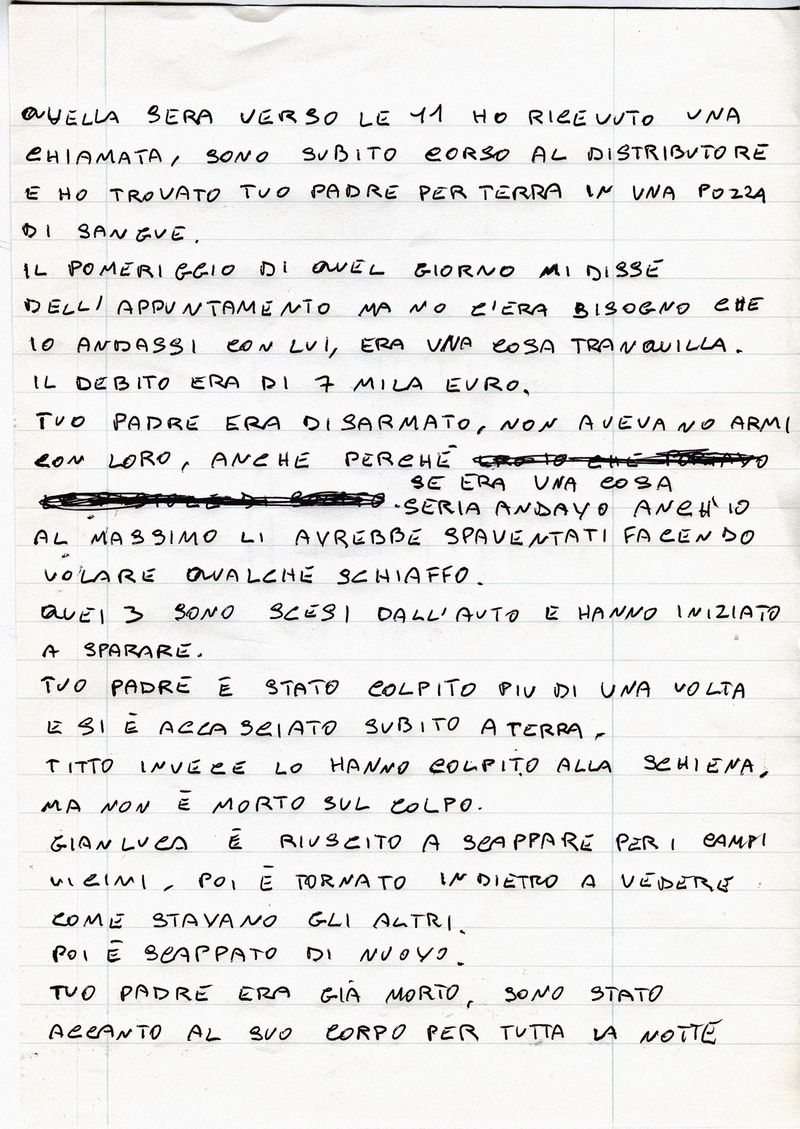 QUELLA SERA VERSO LE 11 HO RICEVUTO UNA
CHIAMATA, SONO SUBITO CORSO AL DISTRIBUTORE
E HO TROVATO TUO PADRE PER TERRA IN UNA POZZA
DI SANGUE.
IL POMERIGGIO DI QUEL GIORNO MI DISSE
DELL'APPUNTAMENTO MA NO C'ERA BISOGNO CHE
IO ANDASSI CON LUI, ERA UNA COSA TRANQUILLA.
IL DEBITO ERA DI 7 MILA EURO.
TUO PADRE ERA DISARMATO, NON AVEVANO ARMI
CON LORO, ANCHE PERCHÉ
SE ERA UNA COSA
SERIA ANDAVO ANCH'IO
AL MASSIMO LI AVREBBE SPAVENTATI FACENDO
VOLARE QUALCHE SCHIAFFO.
QUEI 3 SONO SCESI DALL'AUTO E HANNO INIZIATO
A SPARARE.
TUO PADRE È STATO COLPITO PIU DI UNA VOLTA
E SI È ACCASCIATO SUBITO A TERRA.
TITTO INVECE LO HANNO COLPITO ALLA SCHIENA,
MA NON È MORTO SUL COLPO.
GIANLUCA È RIUSCITO A SCAPPARE PER I CAMPI
VICINI, POI È TORNATO INDIETRO A VEDERE
COME STAVANO GLI ALTRI.
POI È SCAPPATO DI NUOVO.
TUO PADRE ERA GIÀ MORTO, SONO STATO
ACCANTO AL SUO CORPO PER TUTTA LA NOTTE